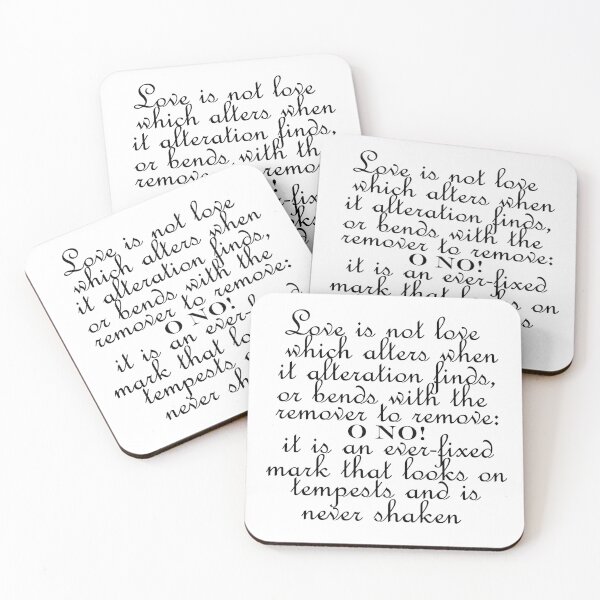 Love is not love
which alters when
it alteration finds,
or bends with the
remover to
Love is not love
which alters when
it alteration finds,
or bends with the
remover to remove:
O NO!
it is an ever-fixed
mark that looks on
Love is not love
which alters when
it alteration finds,
or bends with the
remover to remove:
O NO!
it is an ever-
mark that
tempests
never
Love is not love
which alters when
it alteration finds,
or bends with the
remover to remove:
O NO!
it is an ever-fixed
mark that looks on
tempests and is
never shaken